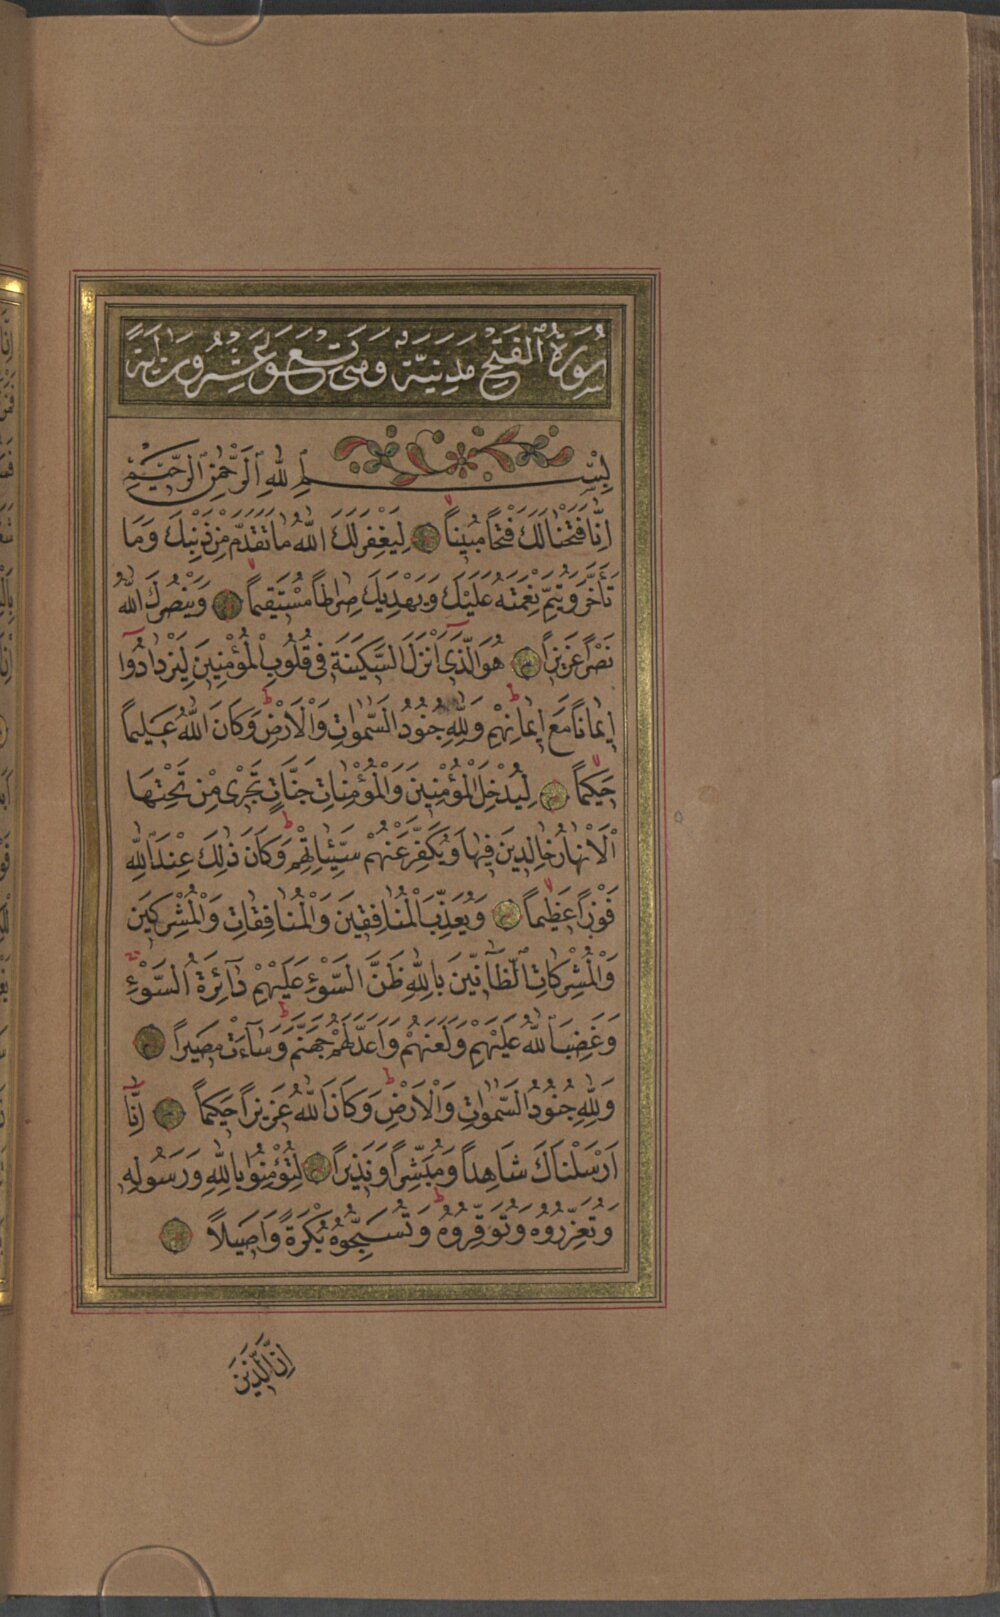 سُورَةُ الْفَتْحِ مَدَنِيَّةٌ وَهِىَ تِسْعٌ وَعِشْرُونَ اٰيَةً
بِسْمِ اللّٰهِ الرَّحْمٰنِ الرَّحٖيمِ
اِنَّا فَتَحْنَا لَكَ فَتْحًا مُبٖينًا لِيَغْفِرَ لَكَ اللّٰهُ مَا تَقَدَّمَ مِنْ ذَنْبِكَ وَمَا
تَاَخَّرَ وَيُتِمَّ نِعْمَتَهُ عَلَيْكَ وَيَهْدِيَكَ صِرَاطًا مُسْتَقٖيمًا وَيَنْصُرَكَ اللّٰهُ
نَصْرًا عَزٖيزًا هُوَ الَّذٖٓى اَنْزَلَ السَّكٖينَةَ فٖى قُلُوبِ الْمُؤْمِنٖينَ لِيَزْدَادُٓوا
اٖيمَانًا مَعَ اٖيمَانِهِمْ وَلِلّٰهِ جُنُودُ السَّمٰوَاتِ وَالْاَرْضِ وَكَانَ اللّٰهُ عَلٖيمًا
حَكٖيمًا لِيُدْخِلَ الْمُؤْمِنٖينَ وَالْمُؤْمِنَاتِ جَنَّاتٍ تَجْرٖى مِنْ تَحْتِهَا
الْاَنْهَارُ خَالِدٖينَ فٖيهَا وَيُكَفِّرَ عَنْهُمْ سَيِّـَٔاتِهِمْ وَكَانَ ذٰلِكَ عِنْدَ اللّٰهِ
فَوْزًا عَظٖيمًا وَيُعَذِّبَ الْمُنَافِقٖينَ وَالْمُنَافِقَاتِ وَالْمُشْرِكٖينَ
وَالْمُشْرِكَاتِ الظَّٓانّٖينَ بِاللّٰهِ ظَنَّ السَّوْءِ عَلَيْهِمْ دَٓائِرَةُ السَّوْءِ
وَغَضِبَ اللّٰهُ عَلَيْهِمْ وَلَعَنَهُمْ وَاَعَدَّ لَهُمْ جَهَنَّمَ وَسَٓاءَتْ مَصٖيرًا
وَلِلّٰهِ جُنُودُ السَّمٰوَاتِ وَالْاَرْضِ وَكَانَ اللّٰهُ عَزٖيزًا حَكٖيمًا اِنَّٓا
اَرْسَلْنَاكَ شَاهِدًا وَمُبَشِّرًا وَنَذٖيرًا لِتُؤْمِنُوا بِاللّٰهِ وَرَسُولِهٖ
وَتُعَزِّرُوهُ وَتُوَقِّرُوهُ وَتُسَبِّحُوهُ بُكْرَةً وَاَصٖيلًا
اِنَّ الَّذٖينَ